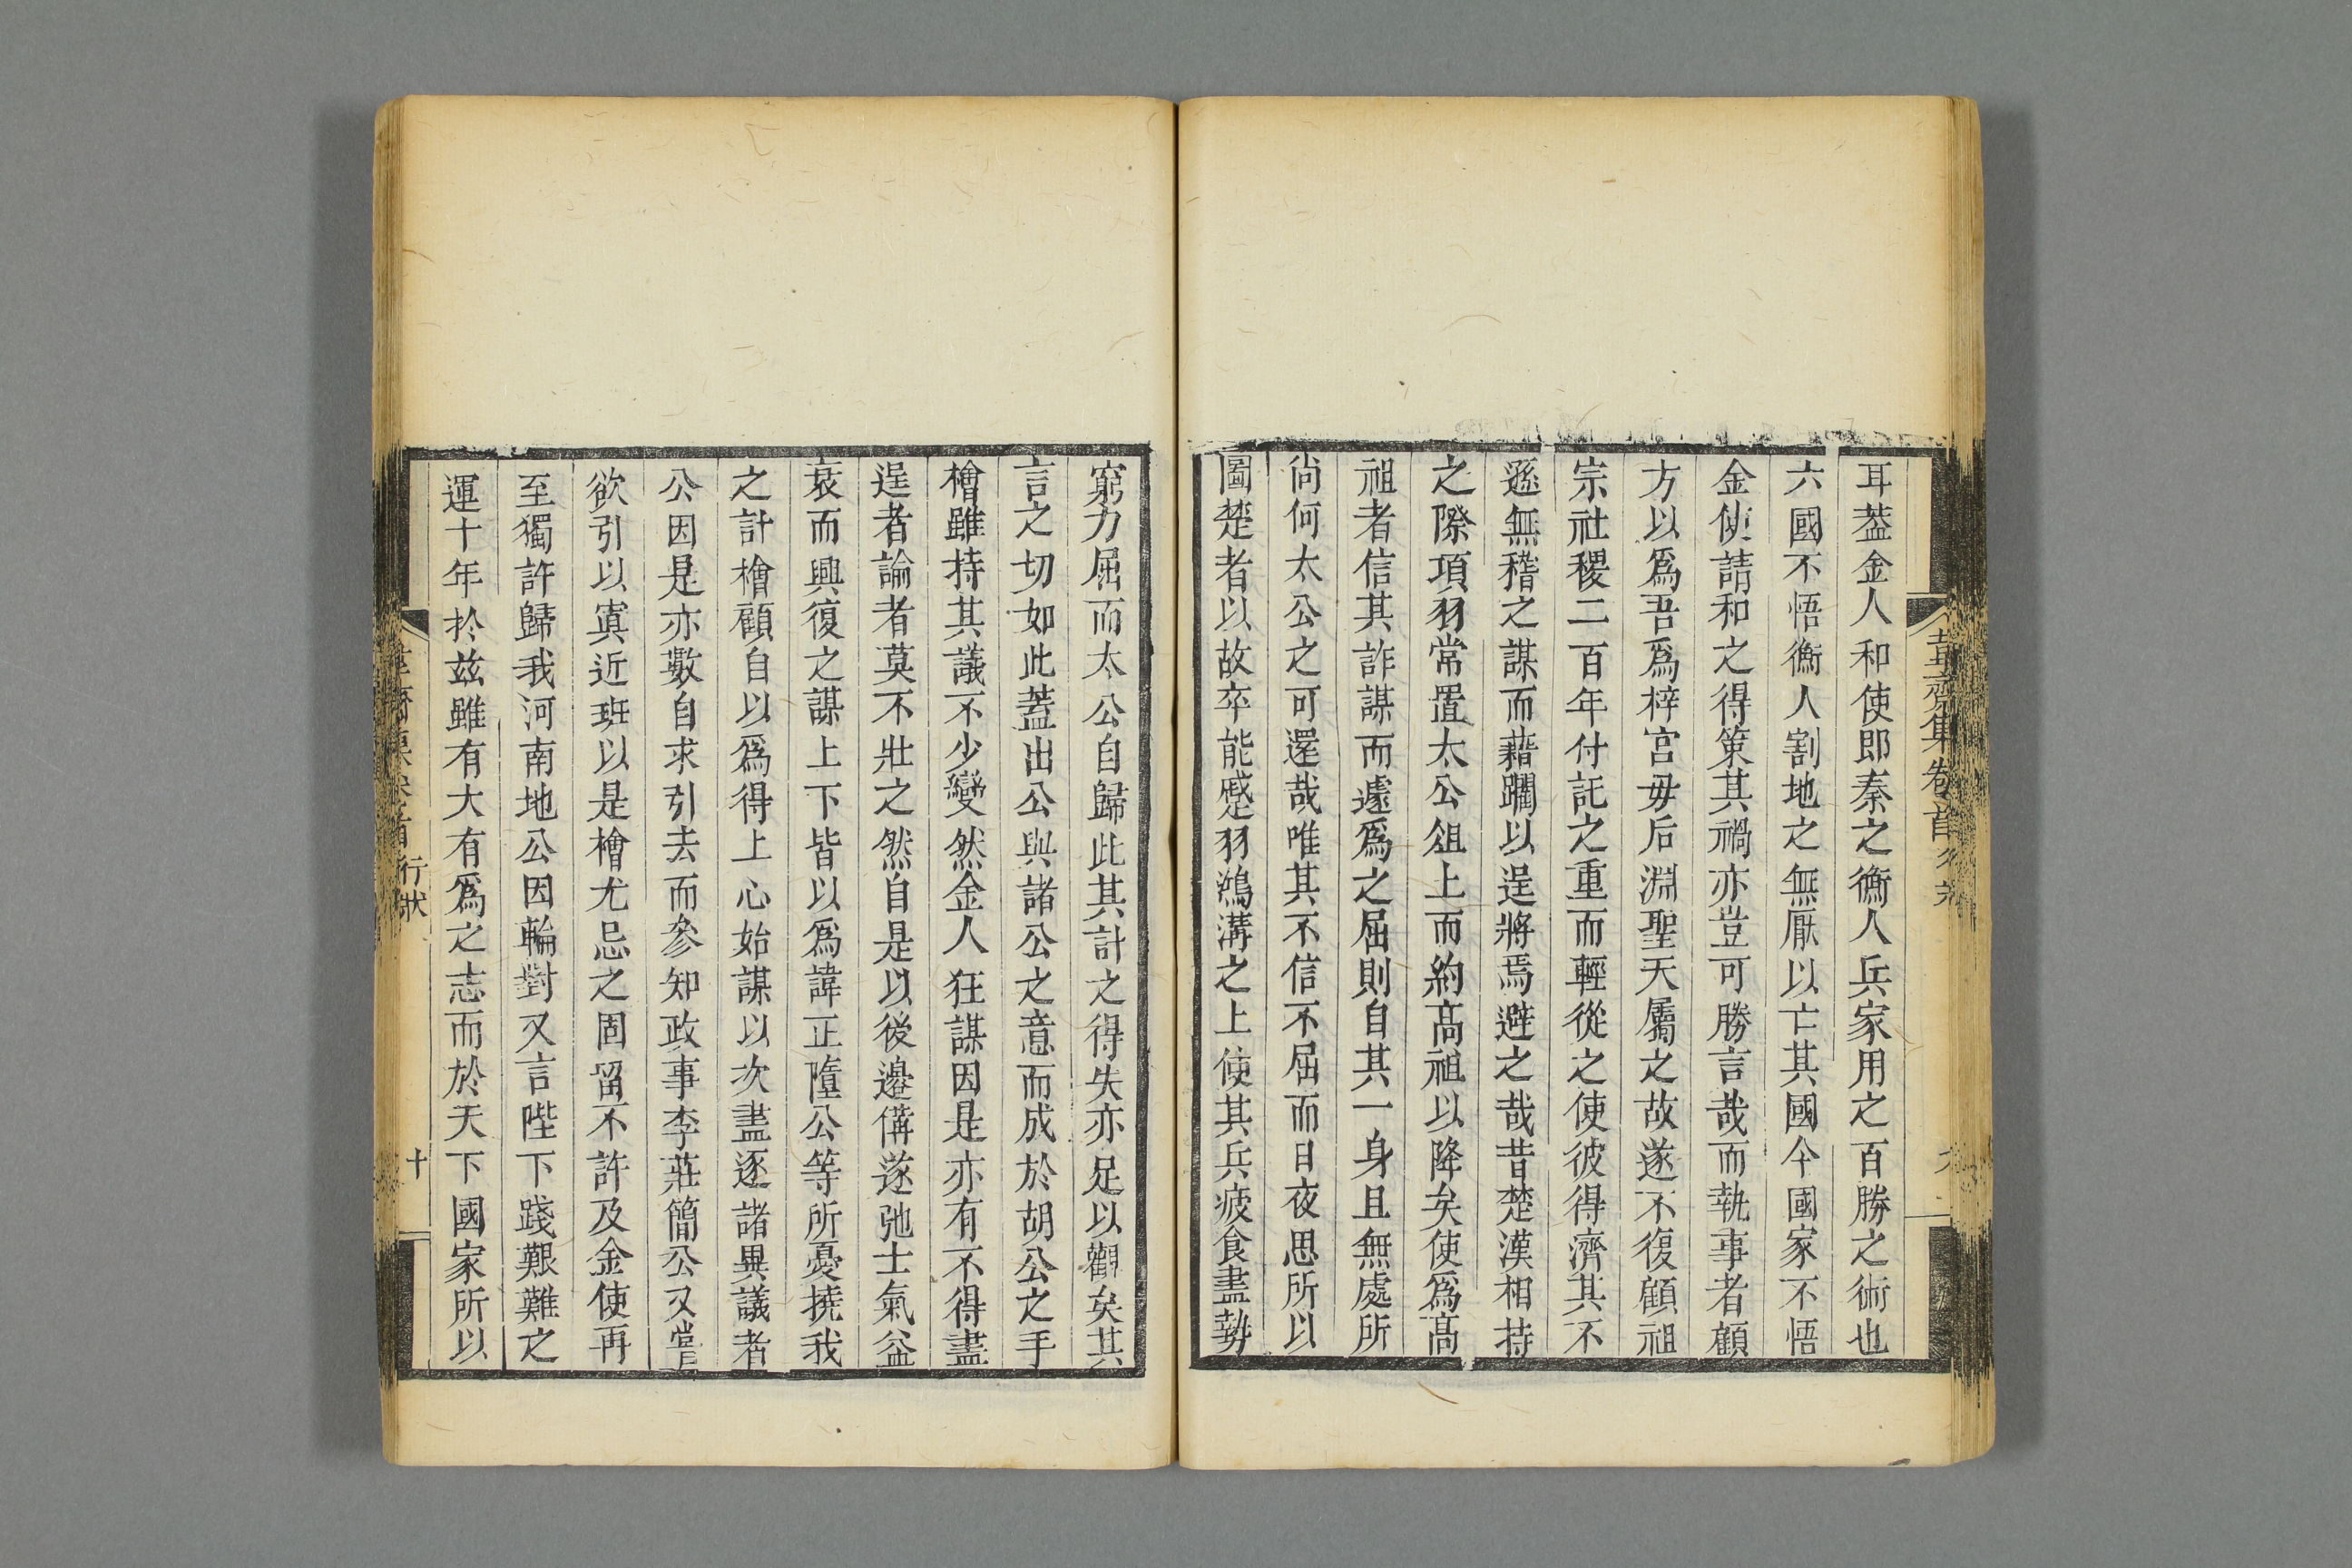 韋齋集卷首
耳葢金人和使即秦之衡人兵家用之百勝之術也
六國不悟衡人割地之無厭以亡其國今國家不悟
金使請和之得策其禍亦豈可勝言哉而執事者顧
方以爲吾爲梓宮毋后淵聖天屬之故遂不復顧祖
宗社稷二百年付託之重而輕從之使彼得濟其不
遜無稽之謀而藉躙以逞將焉避之哉昔楚漢相持
之際項羽常置太公俎上而約高祖以降矣使爲高
祖者信其詐謀而遽爲之屈則自其一身且無處所
尚何太公之可還哉唯其不信不屈而日夜思所以
圖楚者以故卒能蹙羽鴻溝之上使其兵疲食盡勢
窮力屈而太公自歸此其計之得失亦足以觀矣其
言之切如此蓋出公與諸公之意而成於胡公之手
檜雖持其議不少變然金人狂謀因是亦有不得盡
逞者論者莫不壯之然自是以後邊備遂弛士氣益
衰而興復之謀上下皆以爲諱正墮公等所憂撓我
之計檜顧自以爲得上心始謀以次盡逐諸異議者
公因是亦數自求引去而參知政事李莊簡公又嘗
欲引以寘近班以是檜尤忌之固留不許及金使再
至獨許歸我河南地公因輪對又言陛下踐艱難之
運十年於兹雖有大有爲之志而於天下國家所以
行狀
十